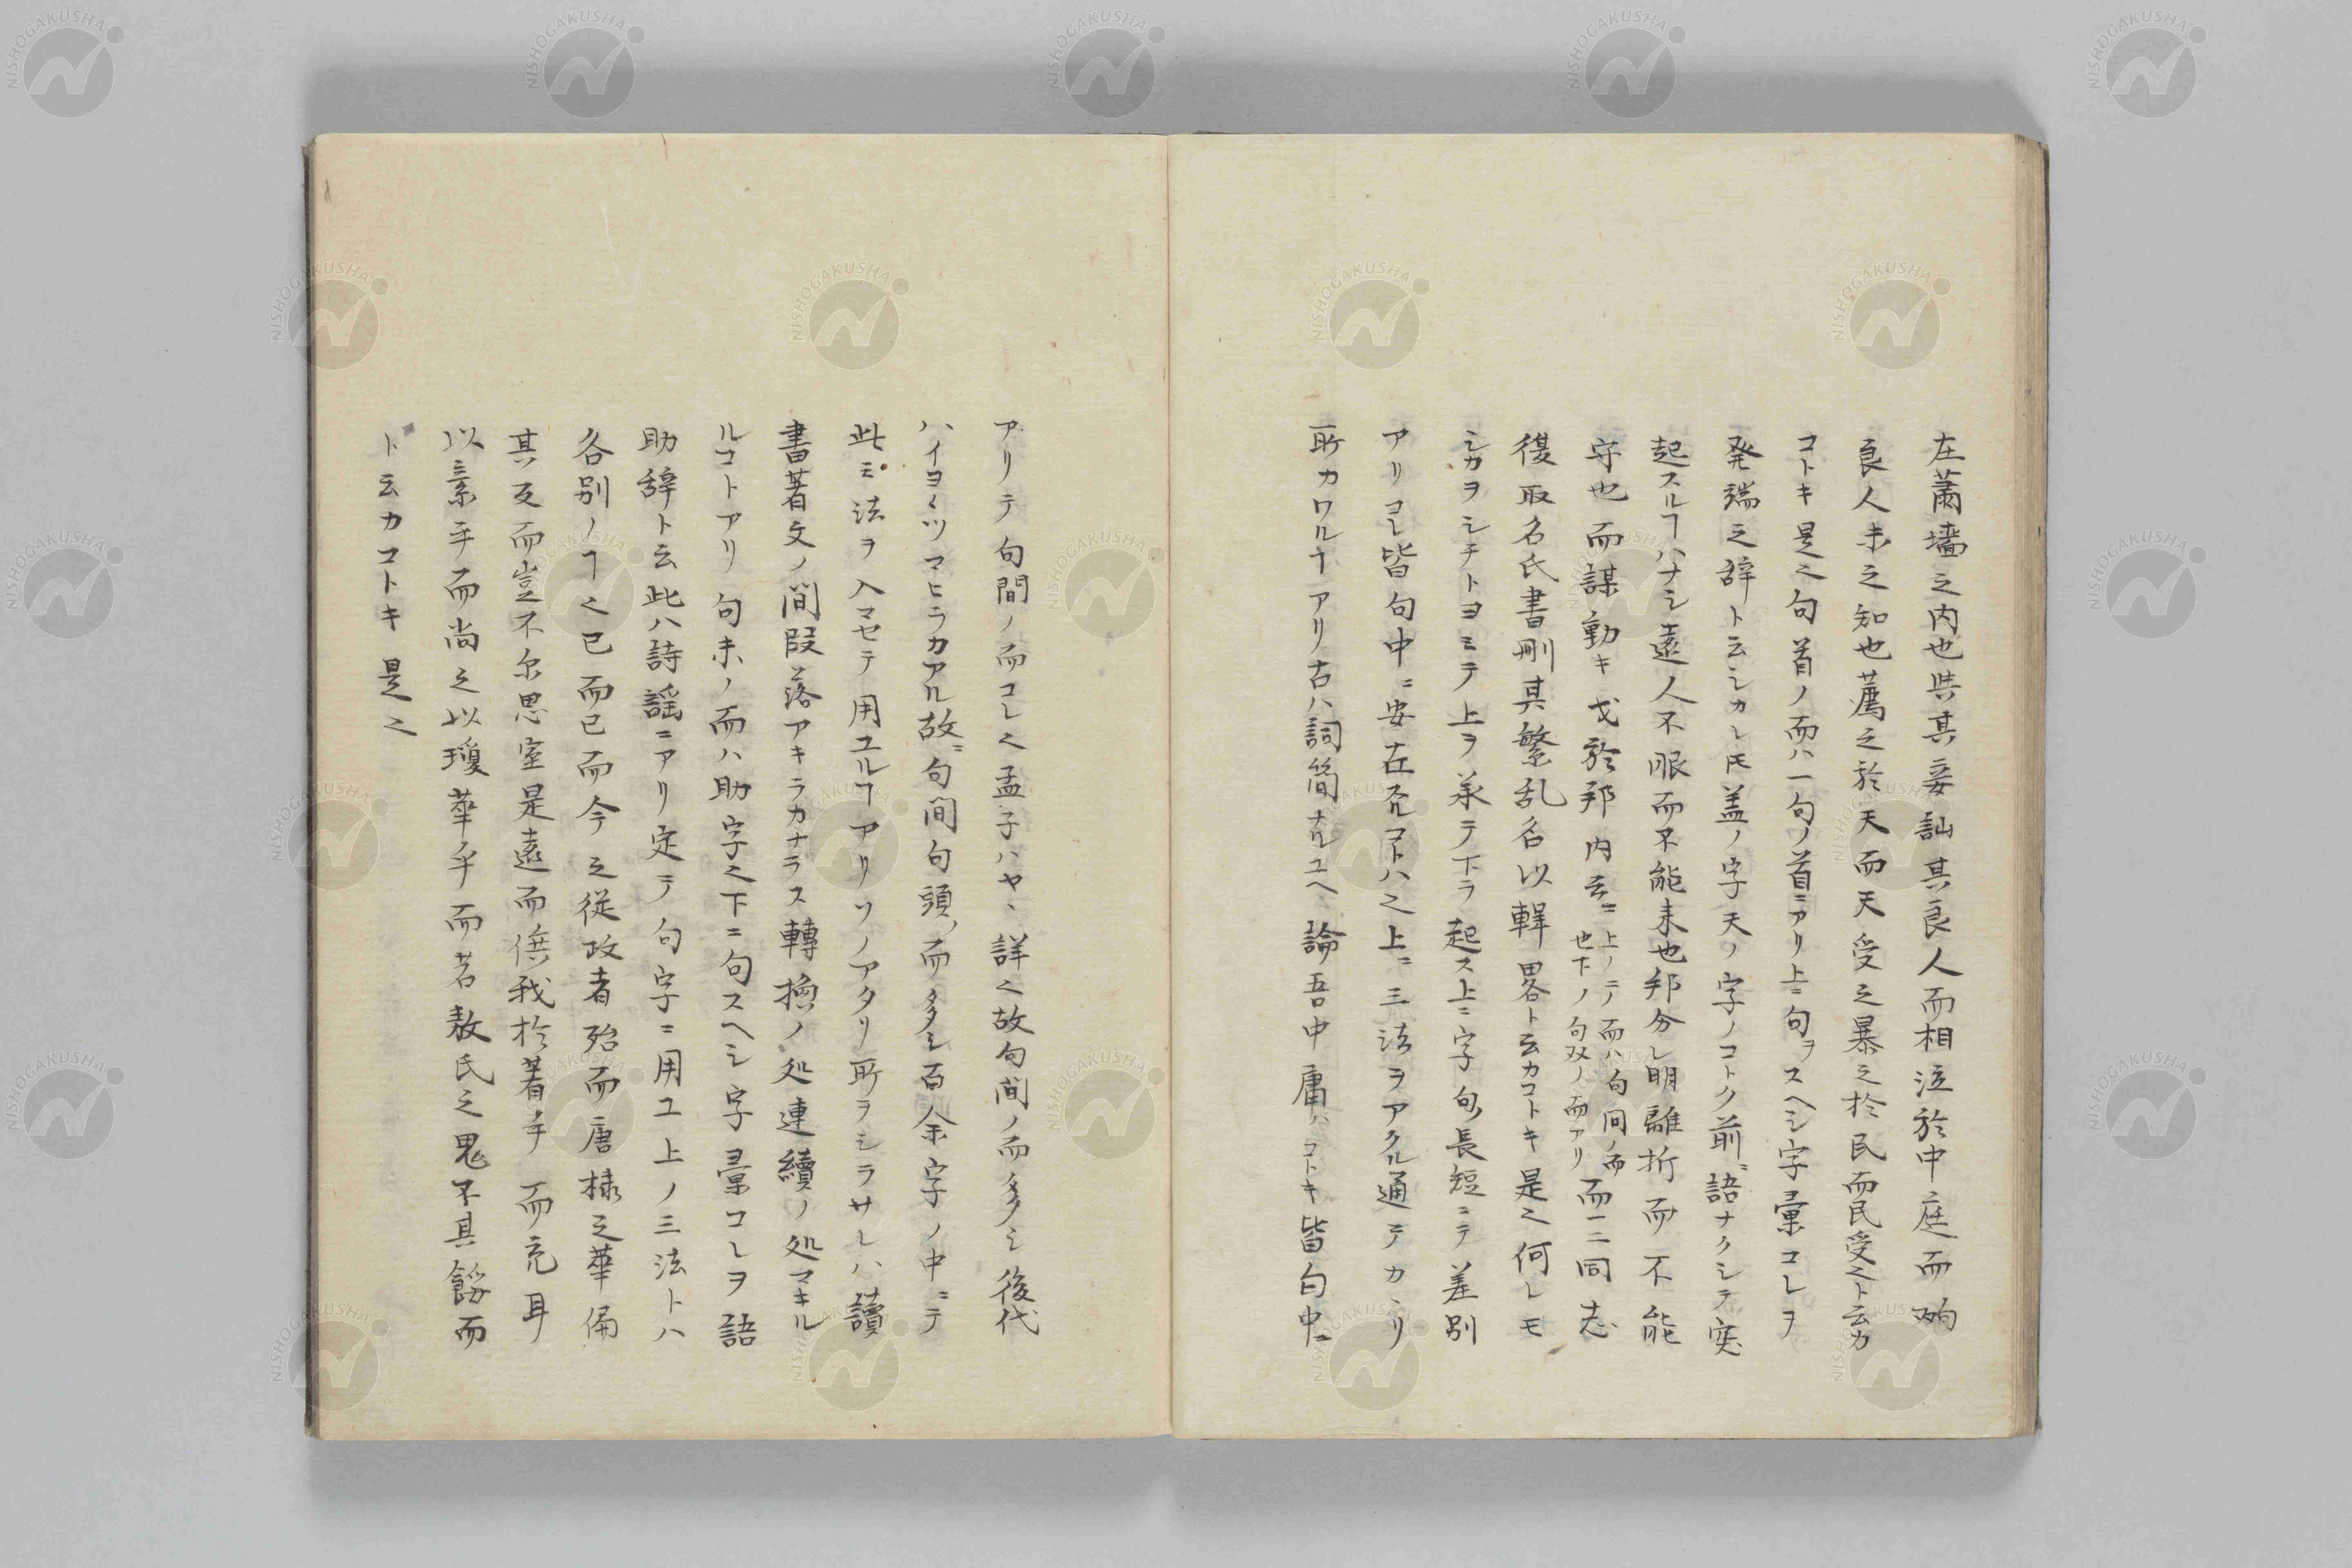 在蕭墻之内也与其妾訕其良人而相泣於中庭而殉
良人未之知也薦之於天而天受之暴之於民而民受之ト云カ
コトキ是之句首ノ而ハ一句ノ首ニアリ上ニ句ヲスヘシ字彙コレヲ
発端之辞ト云シカレ𪜈蓋ノ字天ノ字ノコトク前ニ語ナクシテ突
起スルヿハナシ遠人不服而不能来也邦分レ明離折而不能
守也而謀動キ戈於邦内云ニ上ノテ而ハ句間ノ而
也下ノ句双ノ而アリ而二同志
復取名氏書刪其繁乱名以輯畧ト云カコトキ是之何レモ
シカヲシチトヨミテ上ヲ承テ下ラ起ス上ニ字句長短ニテ差別
アリコレ皆句中ニ安在
上ニ三法ヲアクル通テカヽリ
所カワルヿアリ古ハ詞簡ナルユヘ論吾中庸ハコトキ皆句中ニ
アリテ句間ノ而コレ之孟子ハヤヽ詳之故句間ノ而多シ後代
ハイヨ〱ツマヒラカアル故ニ句間句頭ノ而多シ百余字ノ中ニテ
此三法ヲ入マセテ用ユルヿアリソノアタリ所ヲシラサレハ讀
書著文ノ間段落アキラカナラス轉換ノ処連續ノ処マキル
ルコトアリ句未ノ而ハ助字之下ニ句スヘシ字彙コレヲ語
助辞ト云此ハ詩謡ニアリ定テ句字ニ用ユ上ノ三法トハ
各別ノヿ之已而已而今之従政者殆而唐棣之華偏
其反而豈不尓思室是遠而俟我於著乎而充耳
以素乎而尚之以瓊華乎而若敖氏之鬼不其餒而
ト云カコトキ是之